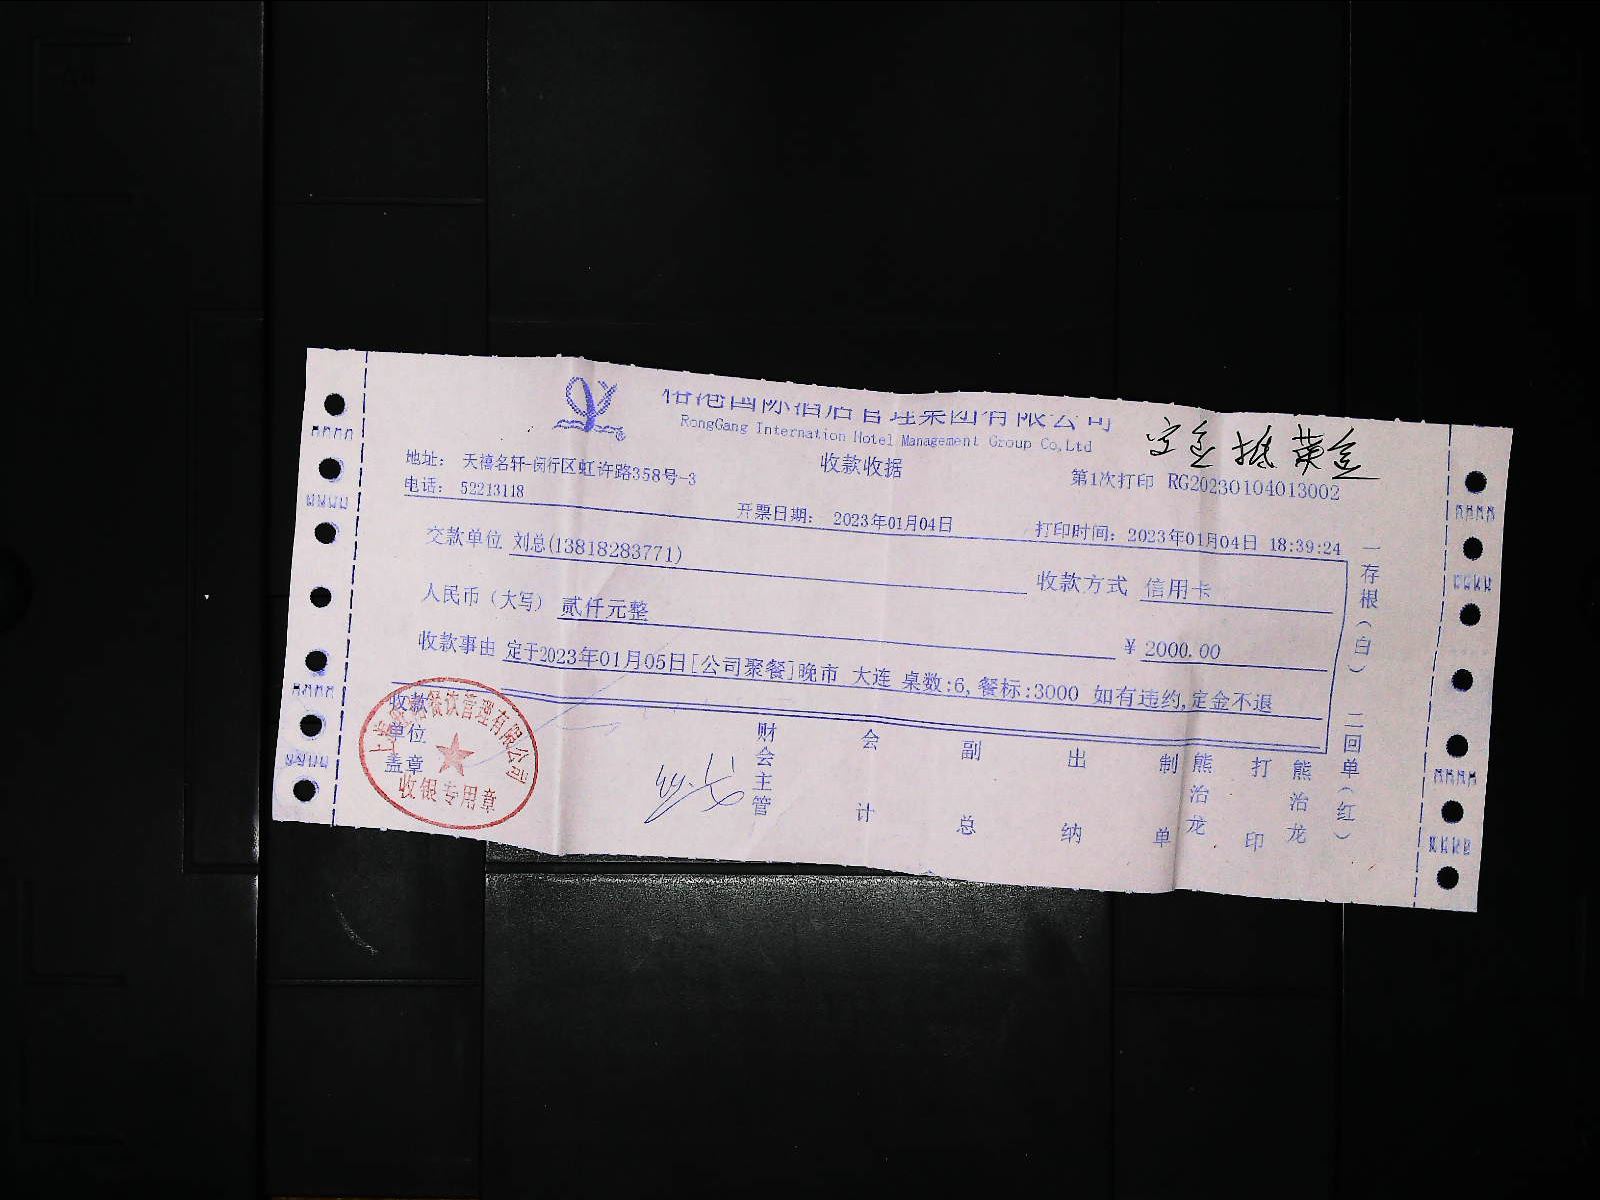 港国际酒店管理集团有限公司
RongGang Internation Hotel Management Group Co,Ltd
定金抵
地址: 天禧名轩-闵行区虹许路358号-3
收款收据
第1次打印 RG20230104013002
电话: 52213118
开票日期: 2023年01月04日
打印时间: 2023年01月04日 18:39:24
交款单位 刘总(13818283771)
收款方式 信用卡
人民币(大写) 贰仟元整
¥ 2000.00
收款事由 定于2023年01月05日[公司聚餐]晚市 大连 桌数:6,餐标:3000 如有违约,定金不退
收款单位盖章
上海 餐饮管理有限公司
收银专用章
财会主管
会计
副总
出纳
制单 熊治龙
打印 熊治龙
一存根(白)
二回单(红)